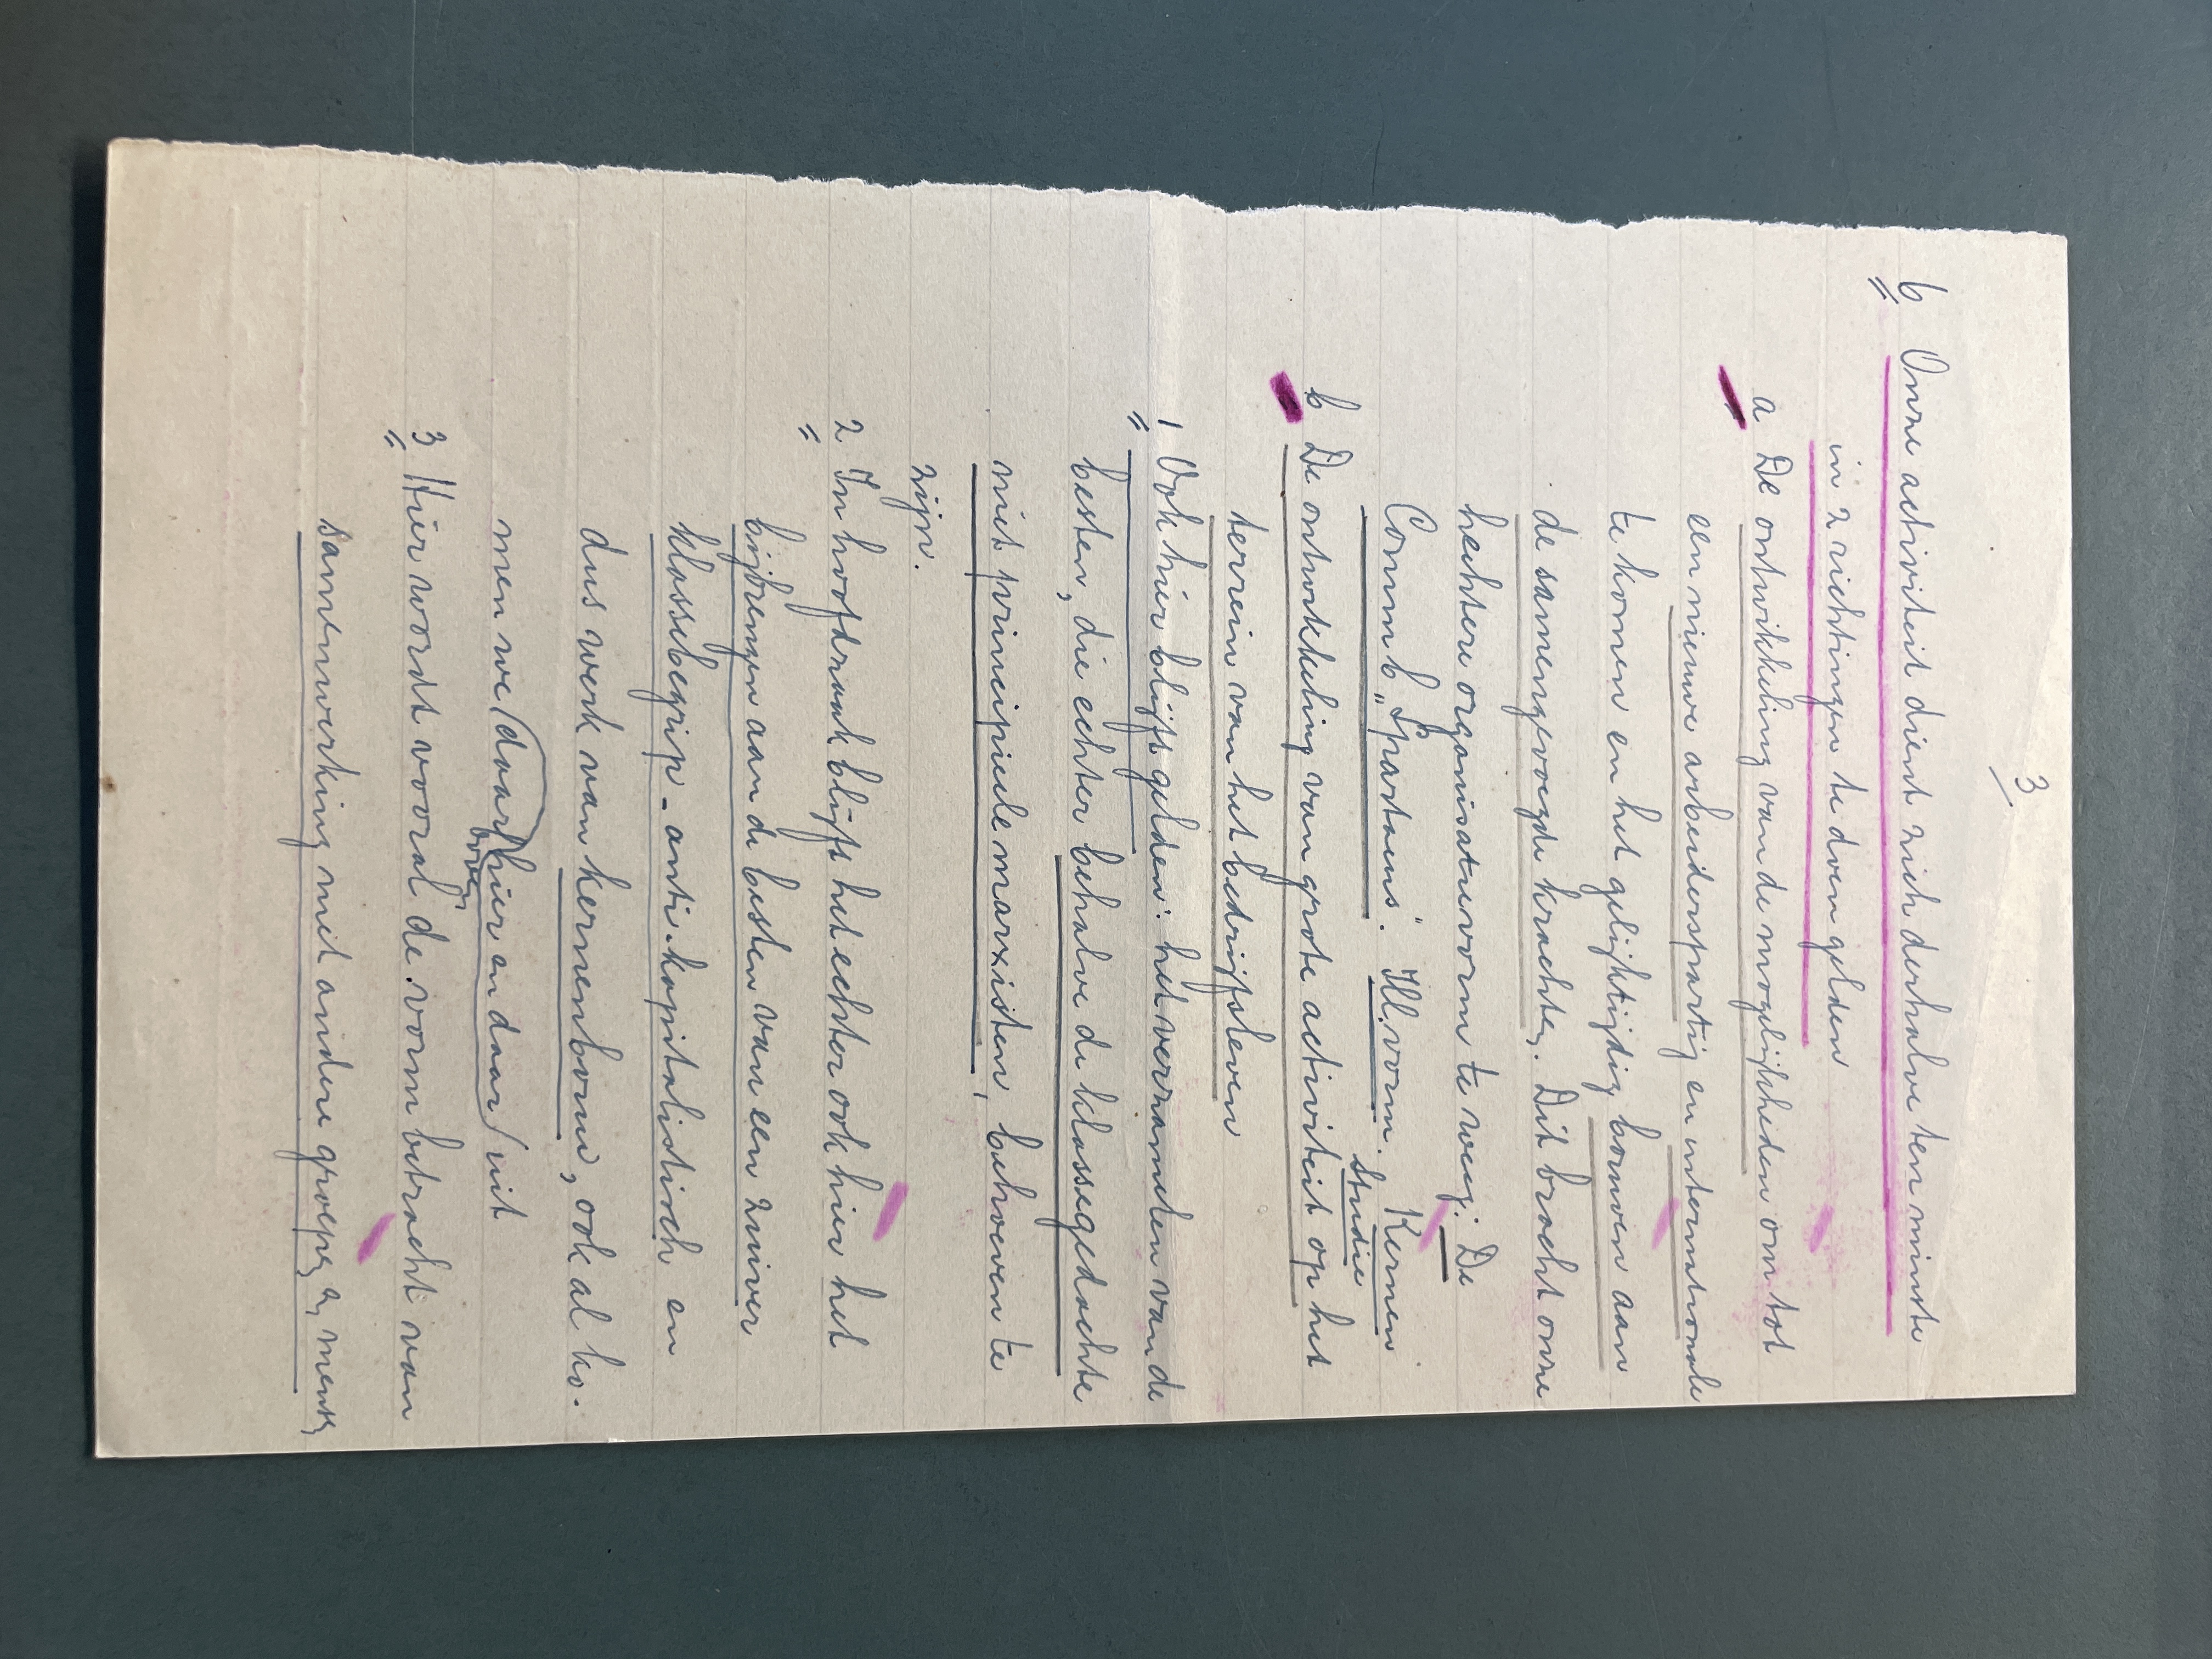 3
6 Onze activiteit dient zich derhalve ten minste
in 2 richtingen te doen gelden
a De ontwikkeling van de mogelijkheden om tot
een nieuwe arbeiderspartij en internationale
te komen en het gelijktijdig bouwen aan
de samengevoegde krachten. Dit bracht onze
hechtere organisatievorm te weeg: De
Comm b „Spartacus". Ill. vorm. Kernen
Studie
b De ontwikkeling van grote activiteit op het
terrein van het bedrijfsleven
1 Ook hier blijft gelden: het verzamelen van de
besten, die echter behalve de klassegedachte
niet principiele marxisten, behoeven te
zijn.
2 In hoofdzaak blijft het echter ook hier het
bijbrengen aan de besten van een zuiver
klassebegrip - anti-kapitalistisch en
dus werk van kernenbouw, ook al ko-
men we (daar) hier en daar / uit
boven
3 Hier wordt vooral de vorm betracht van
samenwerking met andere groepen en mensen